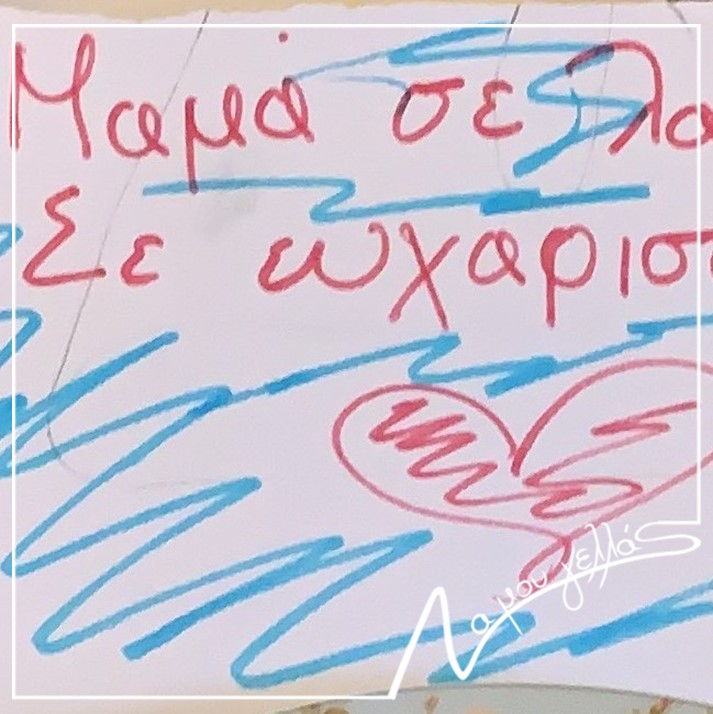 Μαμά σε λα
Σε ωχαρισ
Να μου γελλάς